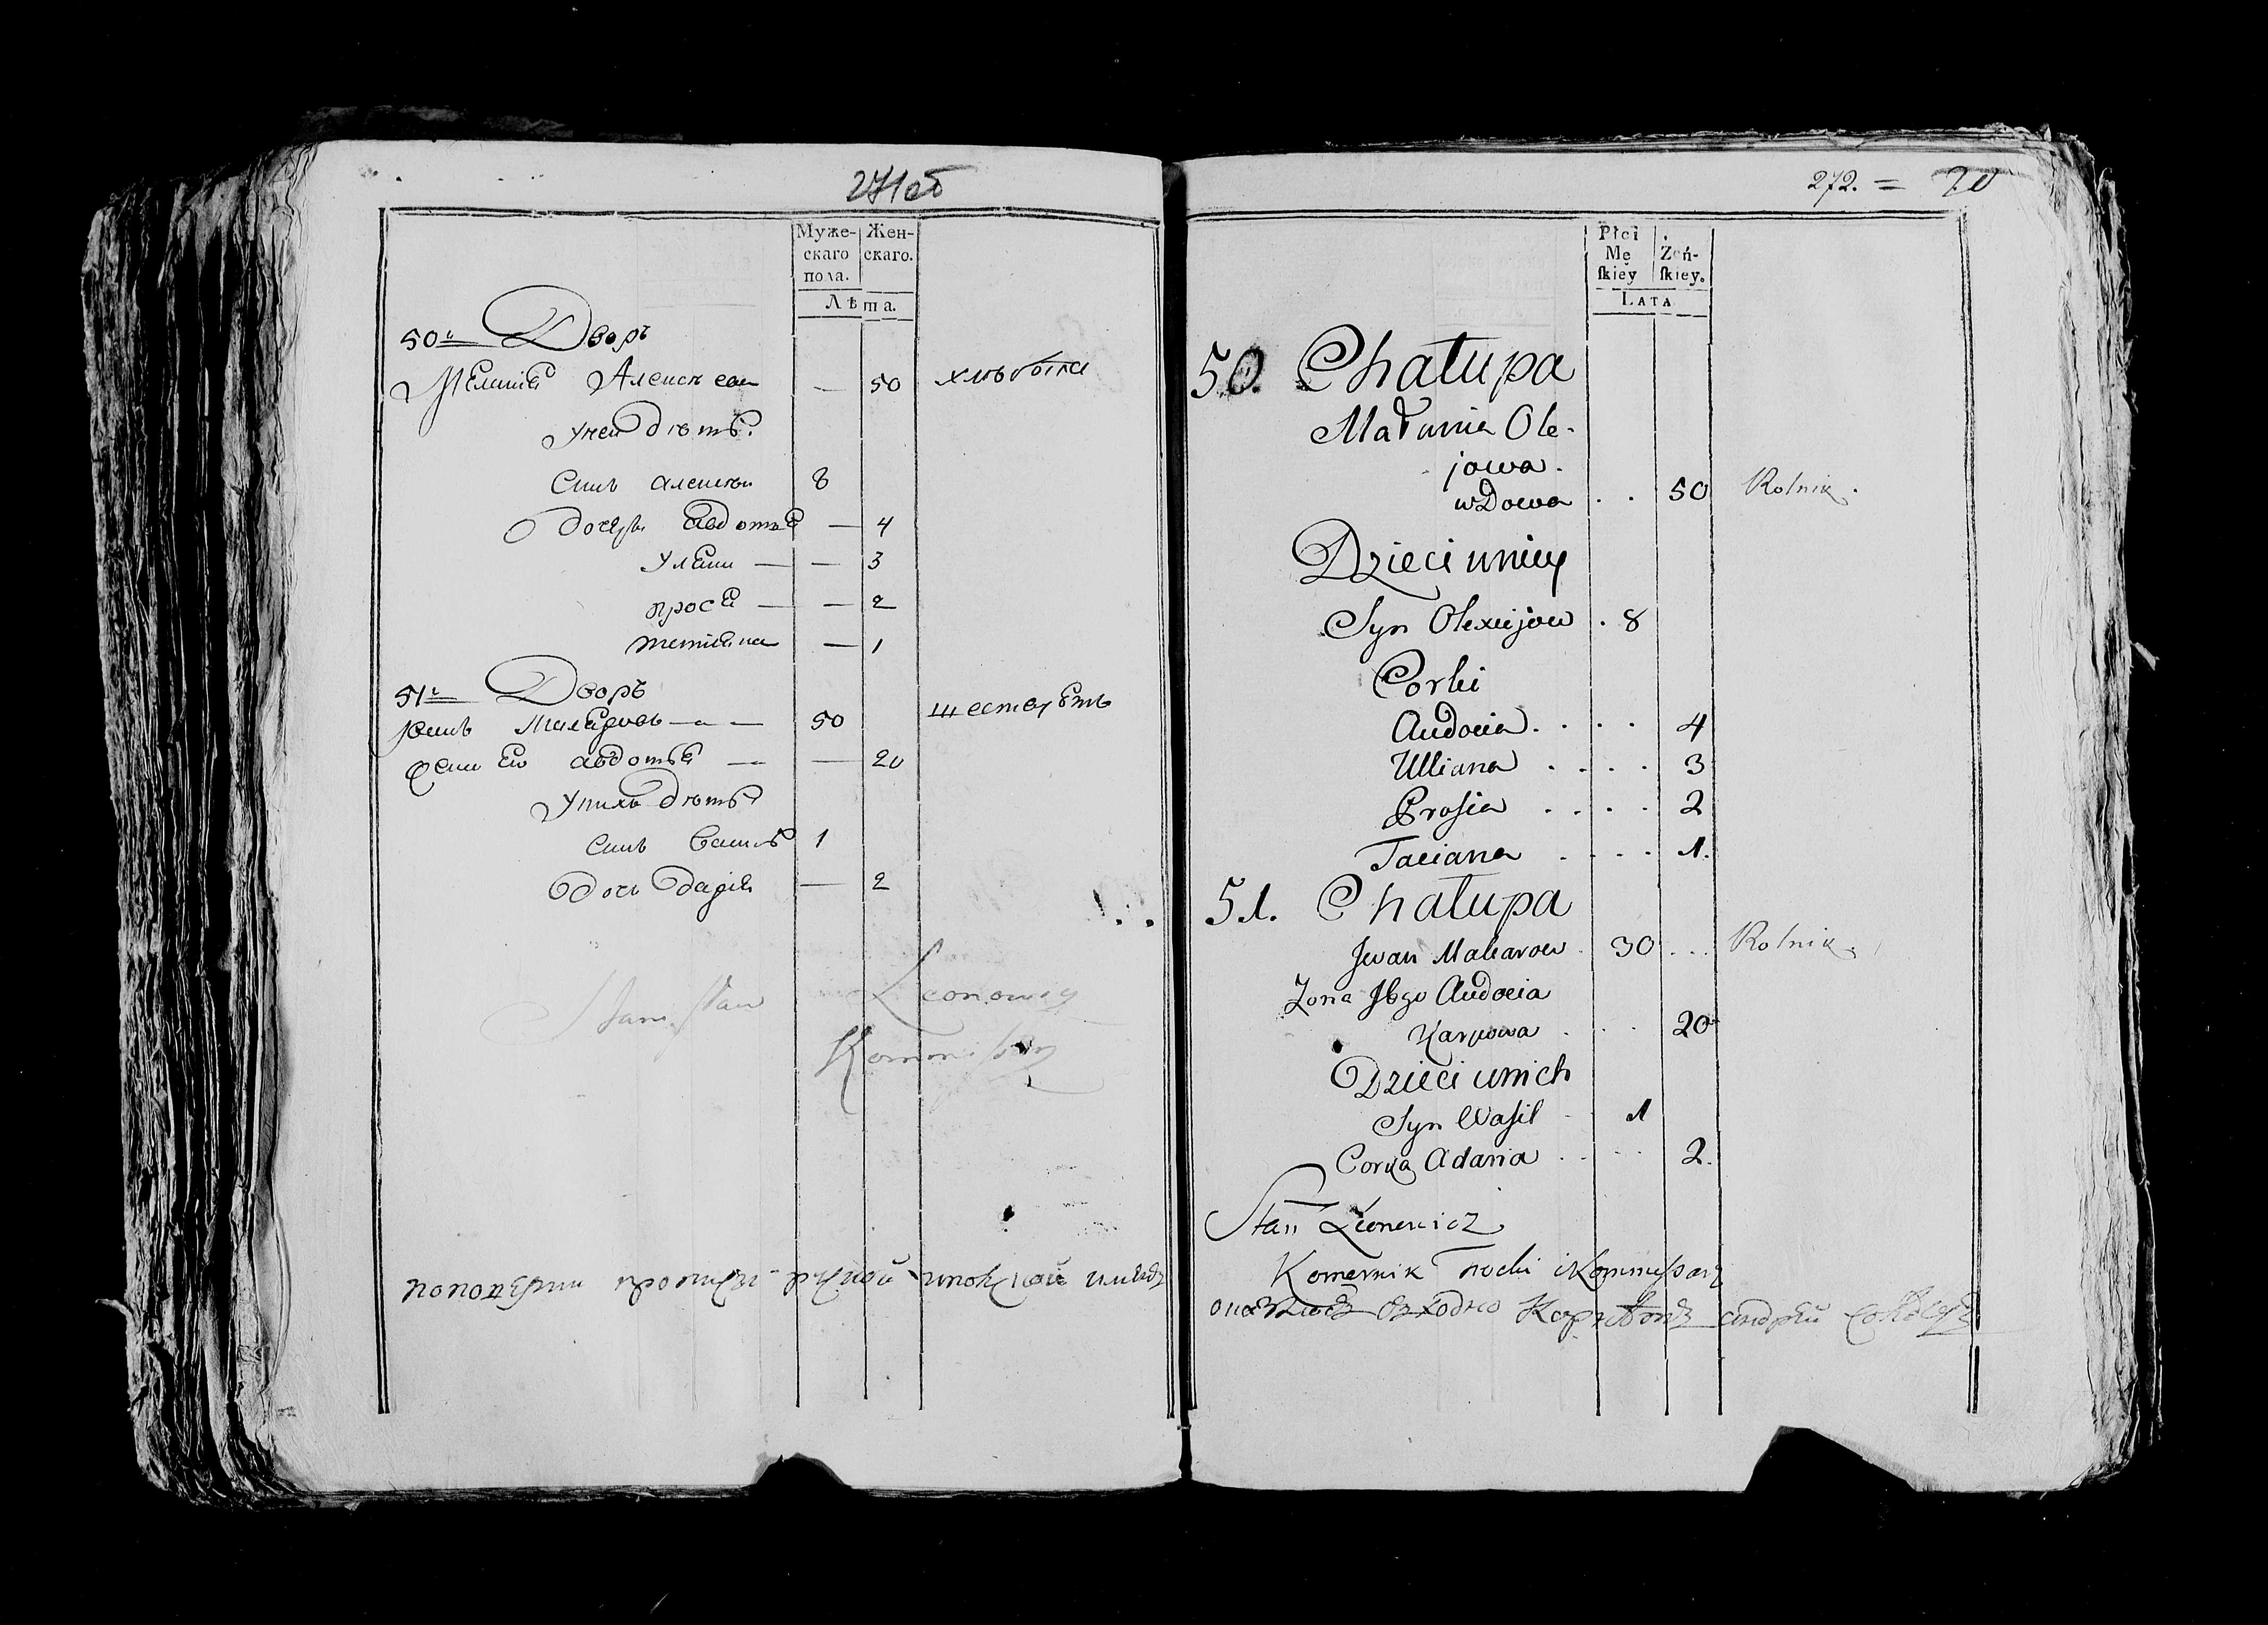 271об
Муже-
скаго
пола.
Жен-
скаго.
Лѣта.
50й Дворъ
Алексѣева — 50
У ней дѣти:
Синъ Алексѣй 8
дочеры авдотъя — 4
Уляни — — 3
прося — — 2
тетіяна — 1
51й Дворъ
50
жена его авдотья — — 20
У нихъ дѣти
Синъ Василь 1
Дочь Дарія — 2
Stanisław Leonowicz
Kommissarz
272. = 70
Płci
Mę
ſkiey
Żeń-
ſkiey.
LATA
50. Chałupa
Małania Ole-
jowa.
wdowa . . 50 Rolnik.
Dzieci u niey
Syn Olexiejow . 8
Corki
Audocia . . . . 4
Ulliana . . . . 3
Prosia . . . . 2
Taciana . . . . 1.
51. Chałupa
Jwan Makarow . 30 . . . Rolnik.
Zona Jego Audocia
Karpowa . . . 20
Dzieci u nich
Syn Waſil 1
Corka Adaria . . . . 2.
Stan Leonowicz
Komornik Trocki i Kommissarz
Андрѣй